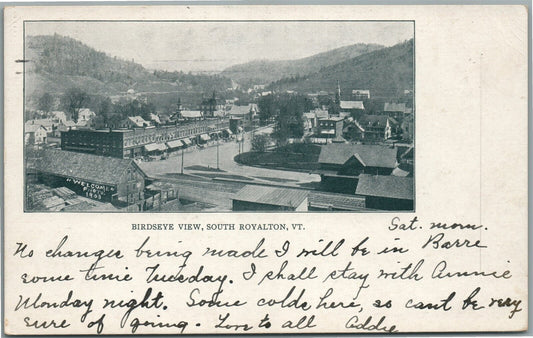 WELCOME
BIRDSEYE VIEW, SOUTH ROYALTON, VT.
Sat. morn.
No changes being made I will be in Barre
some time Tuesday. I shall stay with Annie
Monday night. Some colds here, so cant be very
sure of going. Love to all Addie